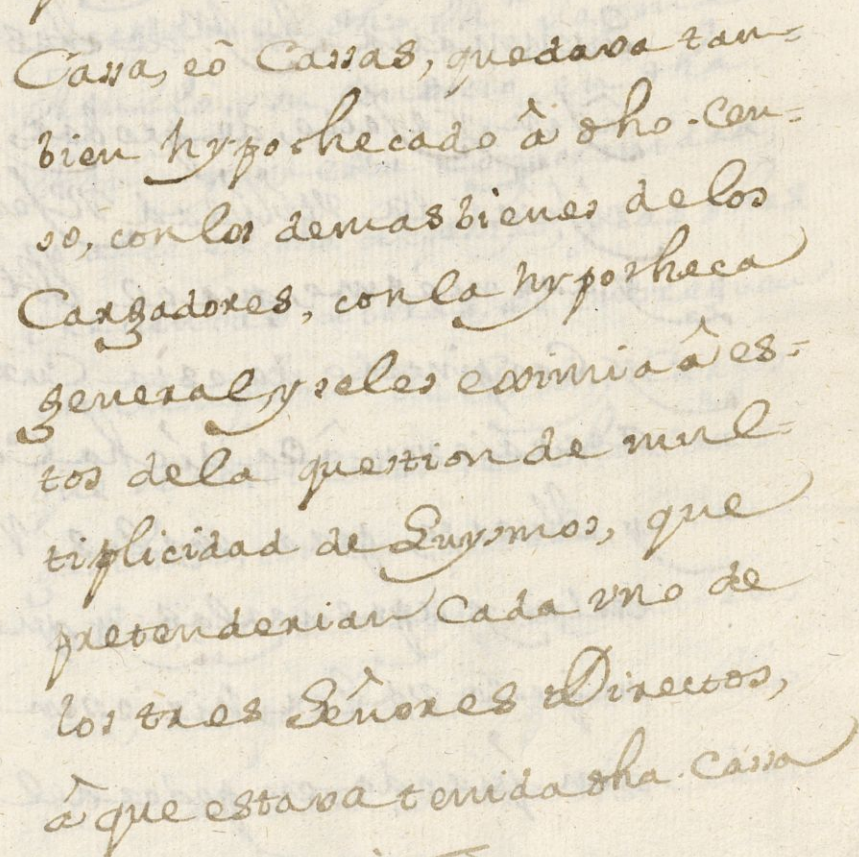 Cassa, eô Cassas, quedava tan=
bien hypothecado â dho. Cen=
so, con los demas bienes de los
Cargadores, con la hypotheca
general, y se les eximia â es=
tos de la question de mul=
tiplicidad de Luysmos, que
pretenderian Cada uno de
los tres Señores Directos,
â que estava tenida dha. Cassa